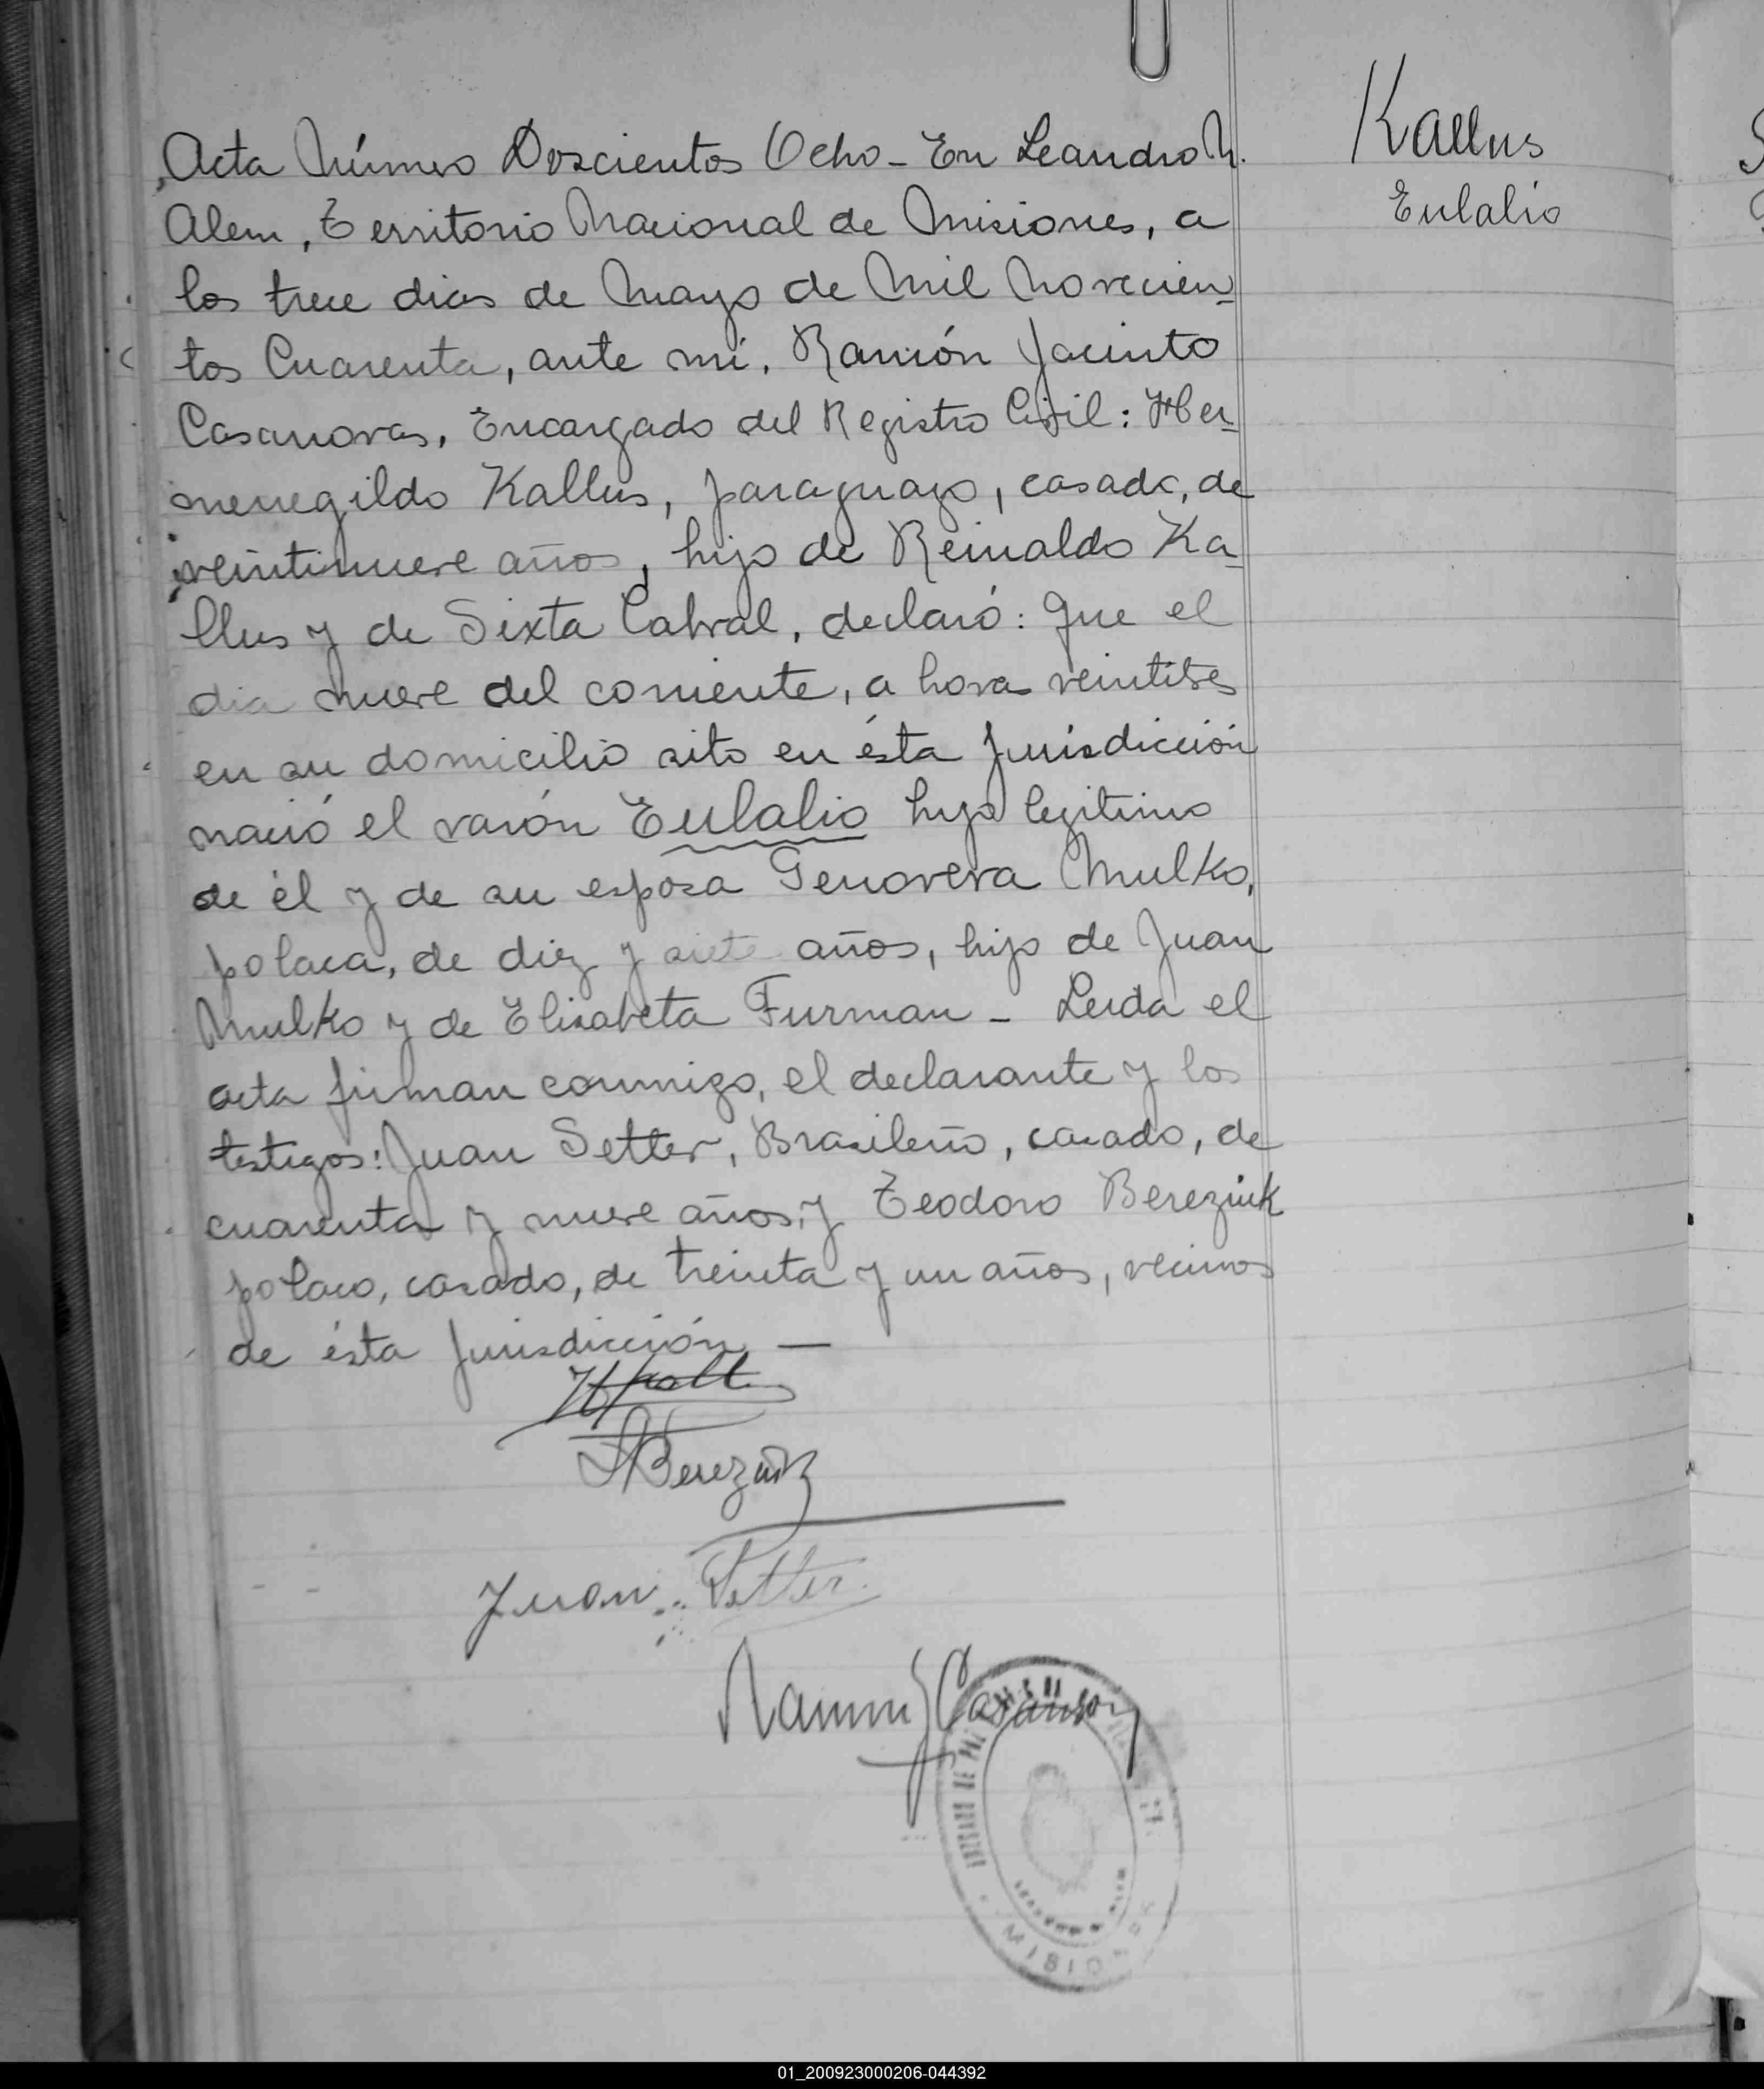 Kallus
Eulalio
Acta Número Doscientos Ocho - En Leandro N.
Alem, Territorio Nacional de Misiones, a
los trece dias de Mayo de Mil Novecien-
tos Cuarenta, ante mi, Ramón Jacinto
Casanovas, Encargado del Registro Civil: Her-
menegildo Kallus, paraguayo, casado, de
veintinueve años, hijo de Reinaldo Ka-
llus y de Sixta Cabral, declaró: Que el
dia nueve del corriente, a hora veintitres
en su domicilio sito en ésta Jurisdicción
nació el varón Eulalio hijo legitimo
de él y de su esposa Genoveva Mulko,
polaca, de diez y siete años, hijo de Juan
Mulko y de Elisabeta Furman - Leida el
acta firman conmigo, el declarante y los
testigos: Juan Setter, Brasileño, casado, de
cuarenta y nueve años, y Teodoro Bereziuk
polaco, casado, de treinta y un años, vecinos
de ésta Jurisdicción —
Bereziuk
Juan Setter
Ramón J Casanovas
MISIONES
01_200923000206-044392